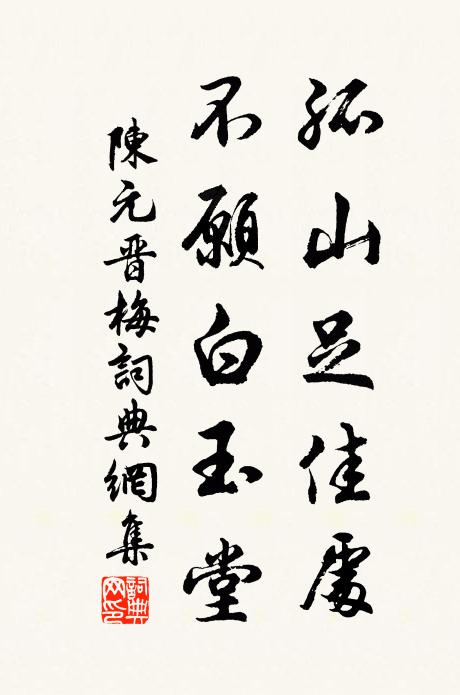 孤山足佳處
不願白玉堂
陳元晋梅詞典網集
詞典網印